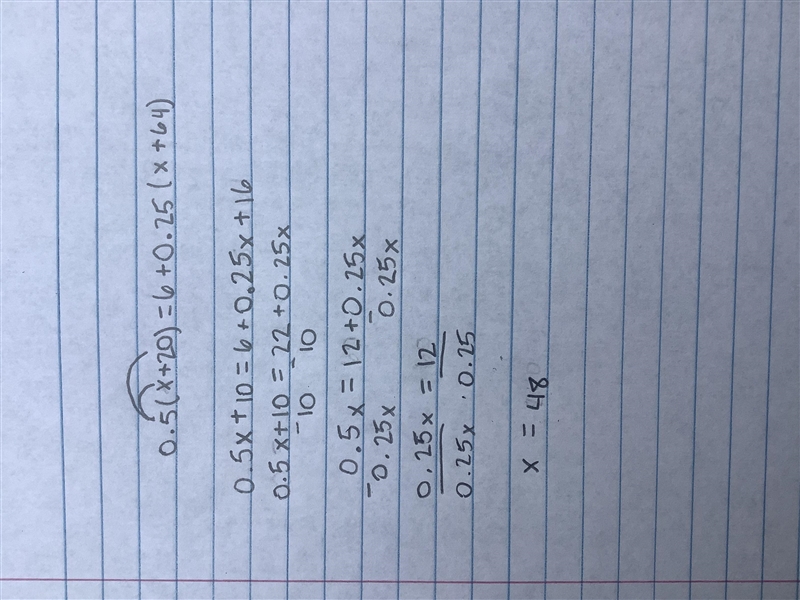 0.5(x+20)=6+0.25(x+64)
0.5x+10=6+0.25x+16
0.5x+10=22+0.25x
-10 -10
0.5x=12+0.25x
-0.25x -0.25x
0.25x=12
0.25x · 0.25
x=48